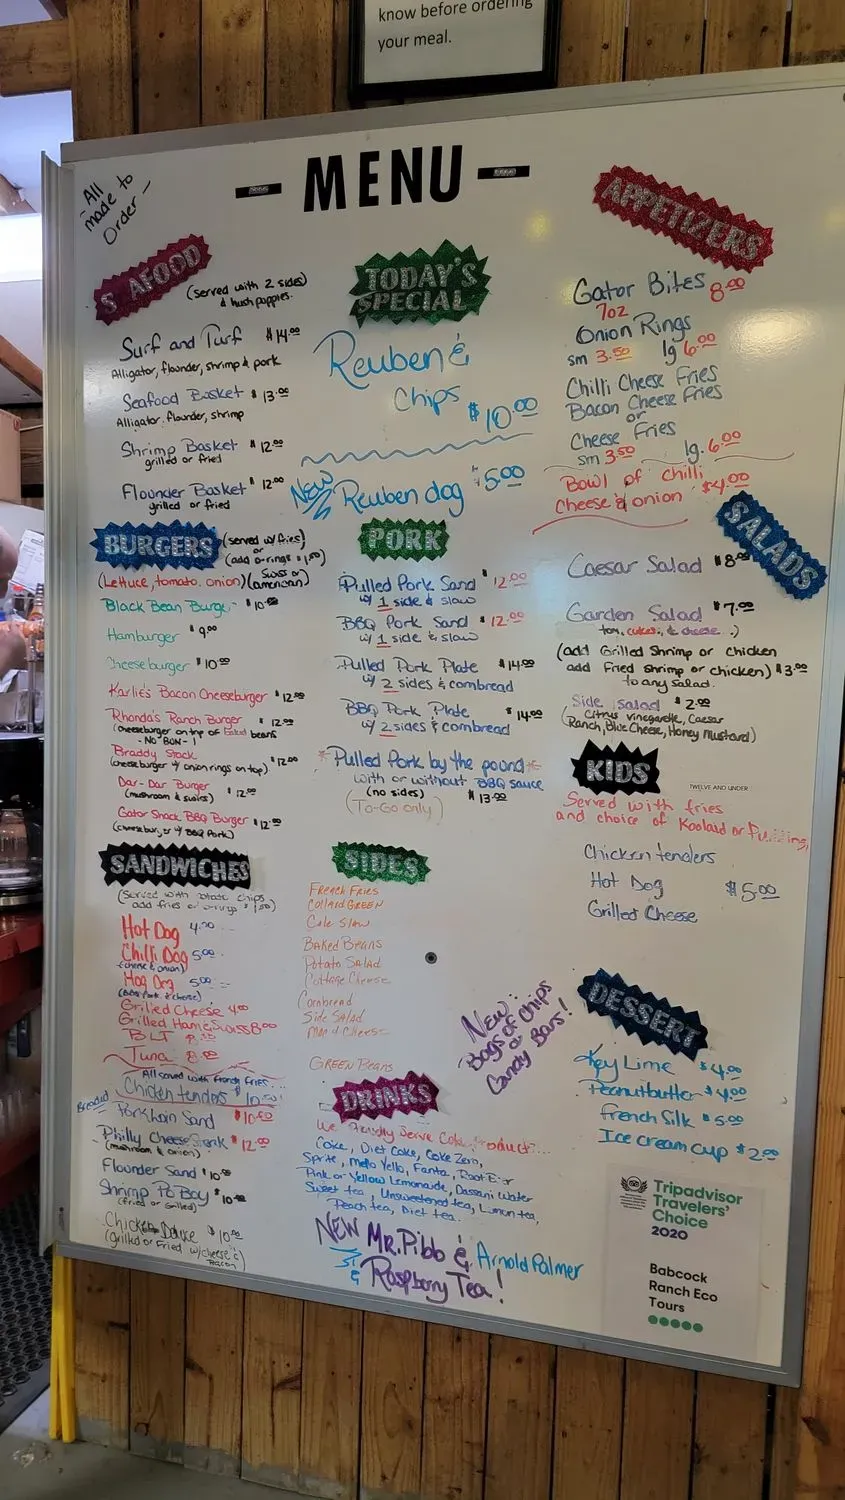 know before ordering
your meal.
- All
made to
Order -
- MENU -
S AFOOD
(served with 2 sides)
& hush puppies.
Surf and Turf $14.00
Alligator, flounder, shrimp & pork
Seafood Basket $13.00
Alligator, flounder, shrimp
Shrimp Basket $12.00
grilled or fried
Flounder Basket $12.00
grilled or fried
BURGERS
(served w/ fries)
or
(add o-rings $1.50)
(Lettuce, tomato, onion) (swiss or
american)
Black Bean Burge $10.00
Hamburger $9.00
Cheeseburger $10.00
Karlie's Bacon Cheeseburger $12.00
Rhonda's Ranch Burger $12.00
(cheeseburger on top of baked beans
- NO BUN -)
Braddy Stack $12.00
(cheeseburger w/ onion rings on top)
Dar-Dar Burger $12.00
(mushroom & swiss)
Gator Shack BBQ Burger $12.00
(cheeseburger w/ BBQ Pork)
SANDWICHES
(served with potato chips
add fries or o-rings $1.50)
Hot Dog 4.00
Chilli Dog 5.00
(cheese & onion)
Hog Dog 5.00
(BBQ Pork & cheese)
Grilled Cheese 4.00
Grilled Ham & Swiss 8.00
BLT
Tuna
All served with french fries...
Chicken tenders $10.50
Breaded Porkloin Sand $10.50
Philly Cheese Steak $12.00
(mushroom & onion)
Flounder Sand $10.00
Shrimp Po Boy $10.00
(fried or Grilled)
Chicken $10.00
(grilled or Fried w/ cheese &
Bacon)
TODAY'S
SPECIAL
Reuben &
Chips
$10.00
NEW Reuben dog $5.00
PORK
Pulled Pork Sand $12.00
w/ 1 side & slaw
BBQ Pork Sand $12.00
w/ 1 side & slaw
Pulled Pork Plate $14.00
w/ 2 sides & cornbread
BBQ Pork Plate $14.00
w/ 2 sides & cornbread
*Pulled Pork by the pound*
with or without BBQ sauce
(no sides) $13.00
(To-Go only)
SIDES
FRENCH FRIES
COLLARD GREEN
Cole Slaw
BAKED Beans
Potato Salad
Cottage Cheese
Cornbread
Side SALAD
Mac & Cheese
GREEN Beans
New:
Bags of Chips
or
Candy Bars!
DRINKS
We Proudly Serve Coke Product...
Coke, Diet Coke, Coke Zero,
Sprite, Mello Yello, Fanta, Root Beer
Pink or Yellow Lemonade, Dassani Water
Sweet tea, Unsweetened tea, Lemon tea,
Peach tea, Diet tea.
NEW MR. Pibb & Arnold Palmer
& Raspberry Tea!
APPETIZERS
Gator Bites 8.00
7oz
Onion Rings
sm 3.50 lg 6.00
Chilli Cheese Fries
Bacon Cheese Fries
or
Cheese Fries
sm 3.50 lg. 6.00
Bowl of chilli
Cheese & onion $4.00
SALADS
Caesar Salad $8.00
Garden Salad $7.00
(tom, cukes, & cheese..)
(add Grilled Shrimp or chicken
add Fried Shrimp or chicken) $3.00
to any salad.
Side salad $2.00
(Citrus vinegarette, Caesar
Ranch, Blue Cheese, Honey Mustard)
KIDS
TWELVE AND UNDER
Served with fries
and choice of Koolaid or Pudding,
Chicken tenders
Hot Dog $5.00
Grilled Cheese
DESSERT
Key Lime $4.00
Peanutbutter $4.00
French Silk $5.00
Ice cream cup $2.00
Tripadvisor
Travelers'
Choice
2020
Babcock
Ranch Eco
Tours